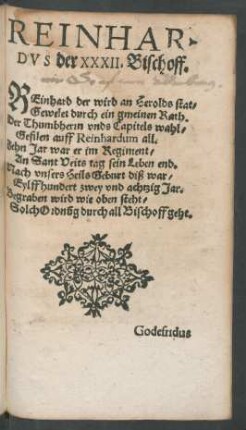 REINHAR-
DVS der XXXII. Bischoff.
REinhard der wird an Herolds stat/
Gewelet durch ein gmeinen Rath.
Der Thumbhern vnds Capitels wahl/
Gefilen auff Reinhardum all.
Zehn Jar war er im Regiment/
An Sant Veits tag sein Leben end.
Nach vnsers Heils Geburt diß war/
Eylff hundert zwey vnd achtzig Jar.
Begraben wird wie oben steht/
Solch Ordnũg durch all Bischoff geht.
Godefridus